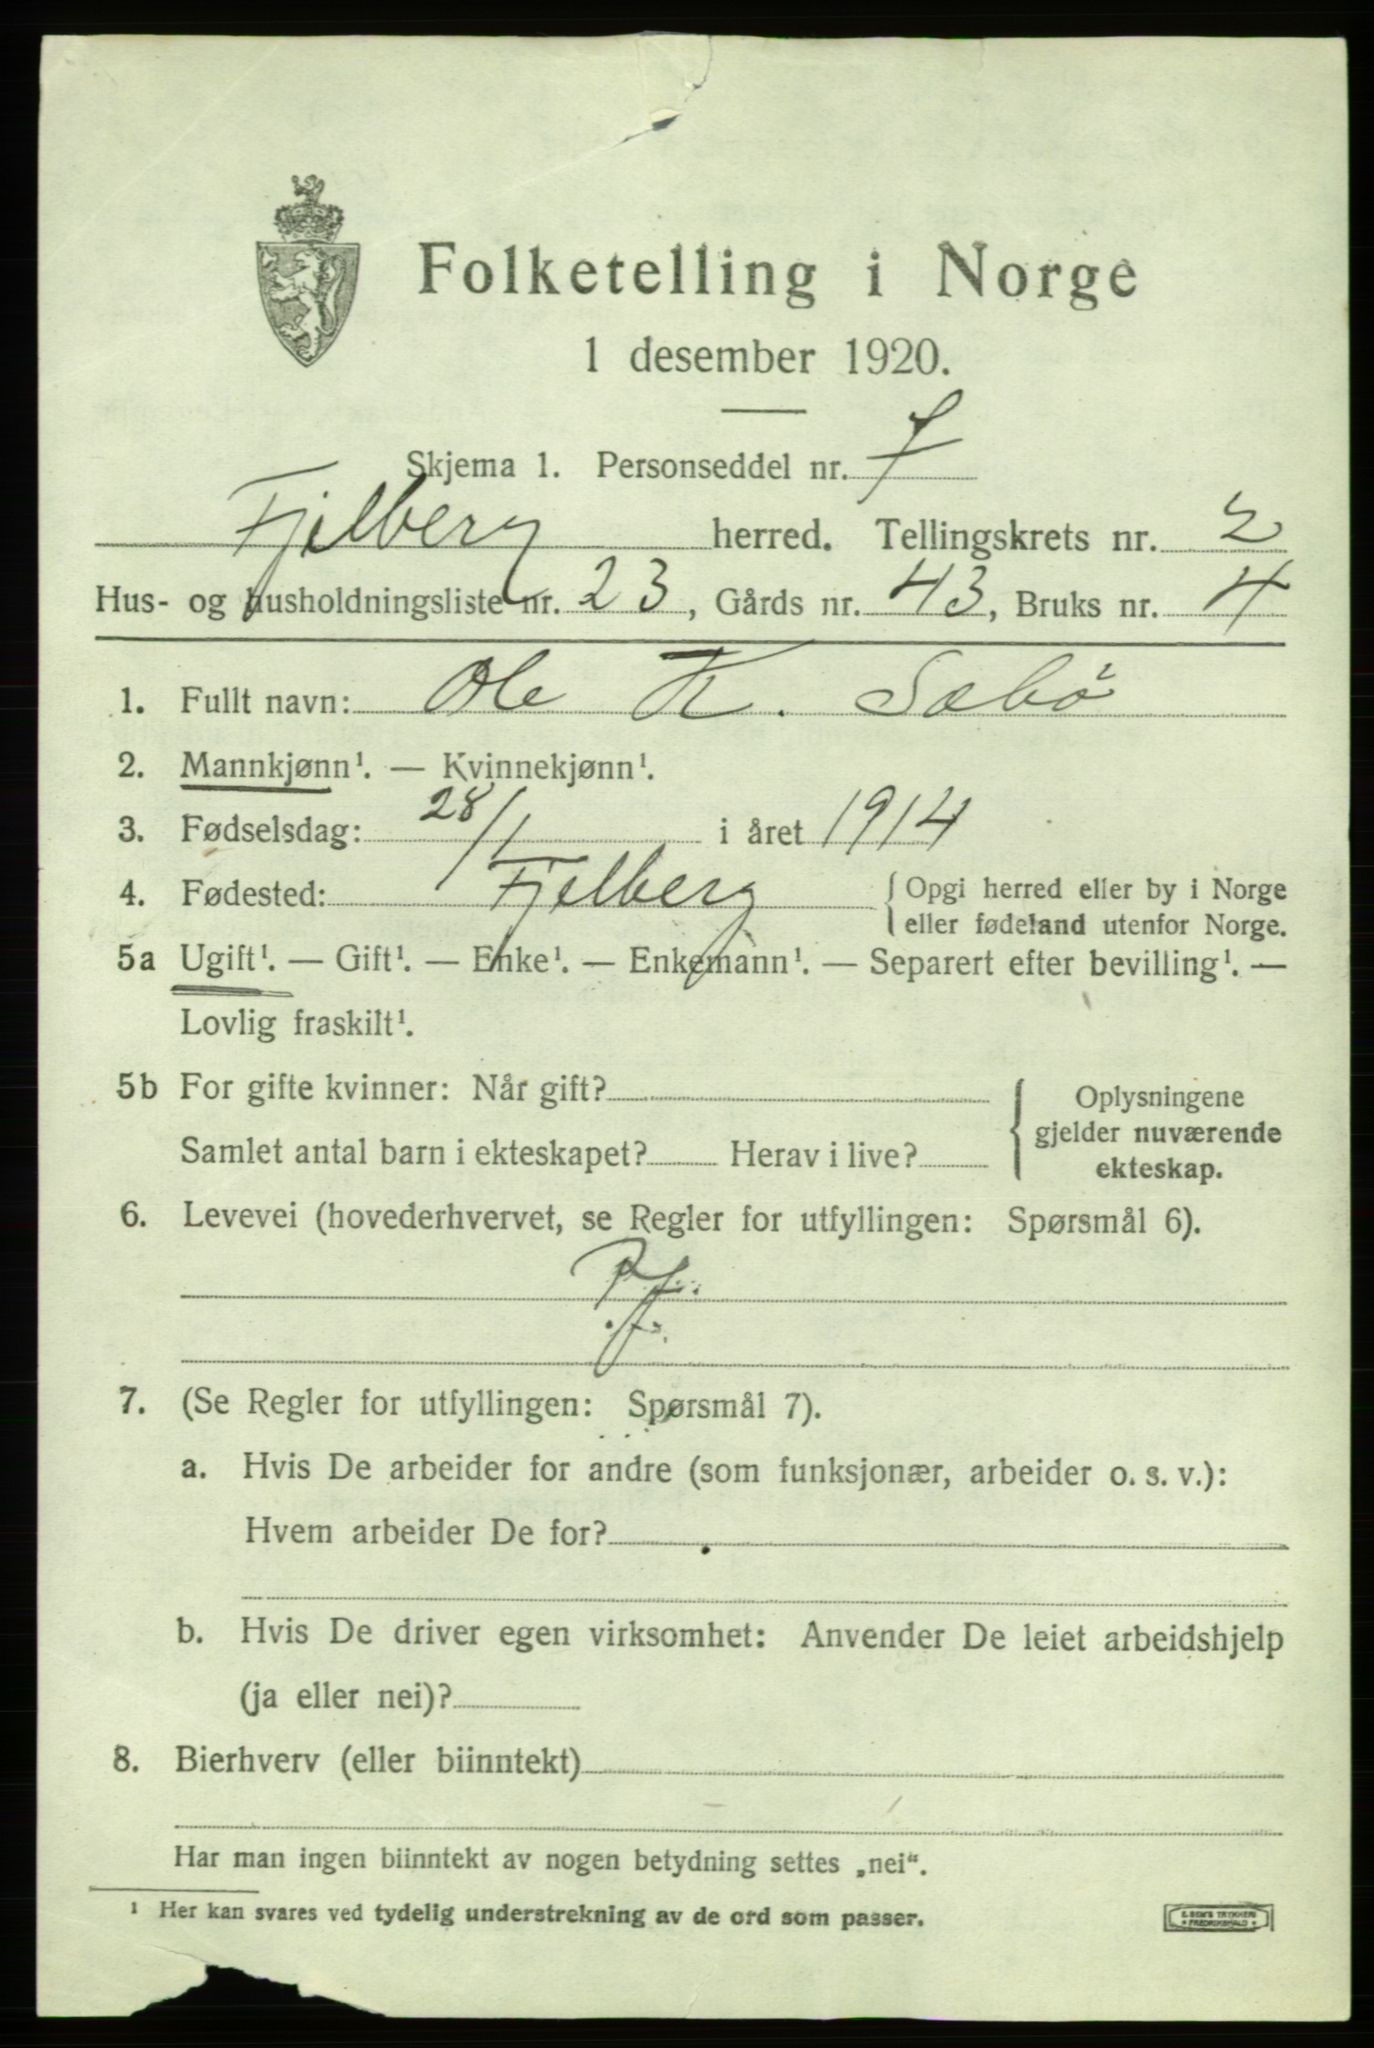 Folketelling i Norge
1 desember 1920.
Skjema 1. Personseddel nr. 7
Fjelberg herred. Tellingskrets nr. 2
Hus- og husholdningsliste nr. 23, Gårds nr. 43, Bruks nr. 4
1. Fullt navn: Ole K. Sæbö
2. Mannkjønn¹. — Kvinnekjønn¹.
3. Fødselsdag: 28/1 i året 1914
4. Fødested: Fjelberg {Opgi herred eller by i Norge
eller fødeland utenfor Norge.
5a Ugift¹. — Gift¹. — Enke¹. — Enkemann¹. — Separert efter bevilling¹. —
Lovlig fraskilt¹.
5b For gifte kvinner: Når gift? { Oplysningene
gjelder nuværende
Samlet antal barn i ekteskapet? Herav i live?
ekteskap.
6. Levevei (hovederhvervet, se Regler for utfyllingen: Spørsmål 6).
7. (Se Regler for utfyllingen: Spørsmål 7).
a. Hvis De arbeider for andre (som funksjonær, arbeider o. s. v.):
Hvem arbeider De for?
b. Hvis De driver egen virksomhet: Anvender De leiet arbeidshjelp
(ja eller nei)?
8. Bierhverv (eller biinntekt)
Har man ingen biinntekt av nogen betydning settes „nei“.
¹ Her kan svares ved tydelig understrekning av de ord som passer.